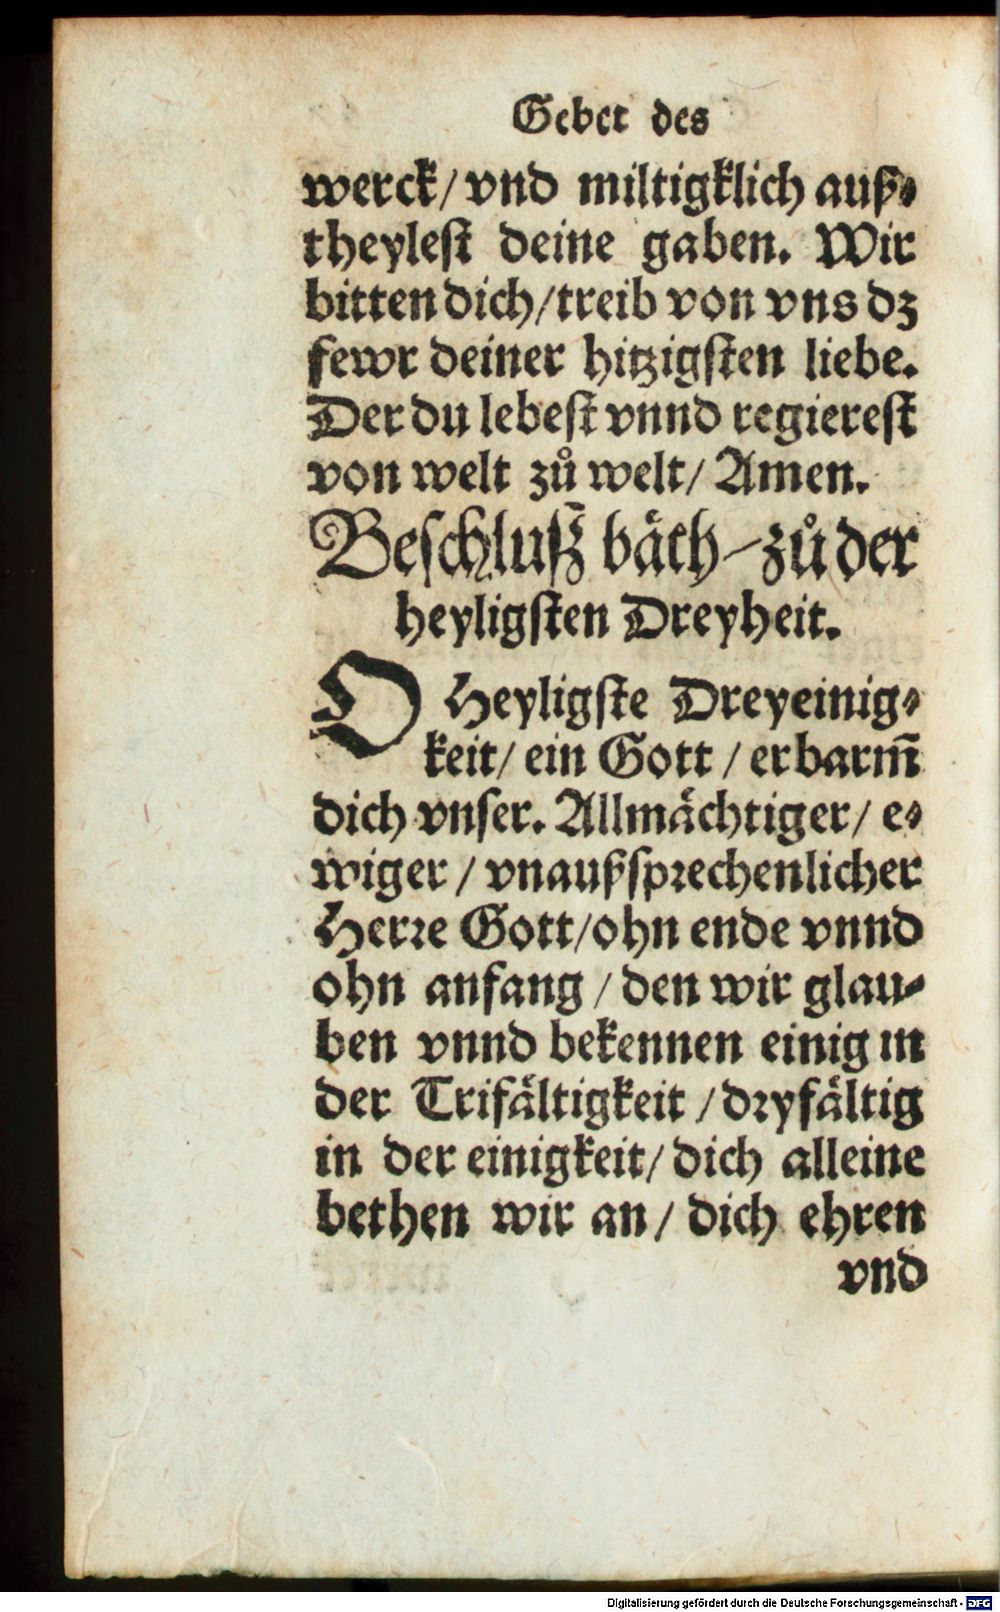 Gebet des
werck/ vnd miltigklich auß-
theylest deine gaben. Wir
bitten dich/ treib von vns dz
fewr deiner hitzigsten liebe.
Der du lebest vnnd regierest
von welt zů welt/ Amen.
Beschluß bäth - zů der
heyligsten Dreyheit.
O Heyligste Dreyeinig-
keit/ ein Gott / erbarm̃
dich vnser. Allmächtiger/ e-
wiger / vnaußsprechenlicher
Herre Gott/ ohn ende vnnd
ohn anfang / den wir glau-
ben vnnd bekennen einig in
der Trifältigkeit / dryfältig
in der einigkeit/ dich alleine
bethen wir an/ dich ehren
vnd
Digitalisierung gefördert durch die Deutsche Forschungsgemeinschaft - DFG